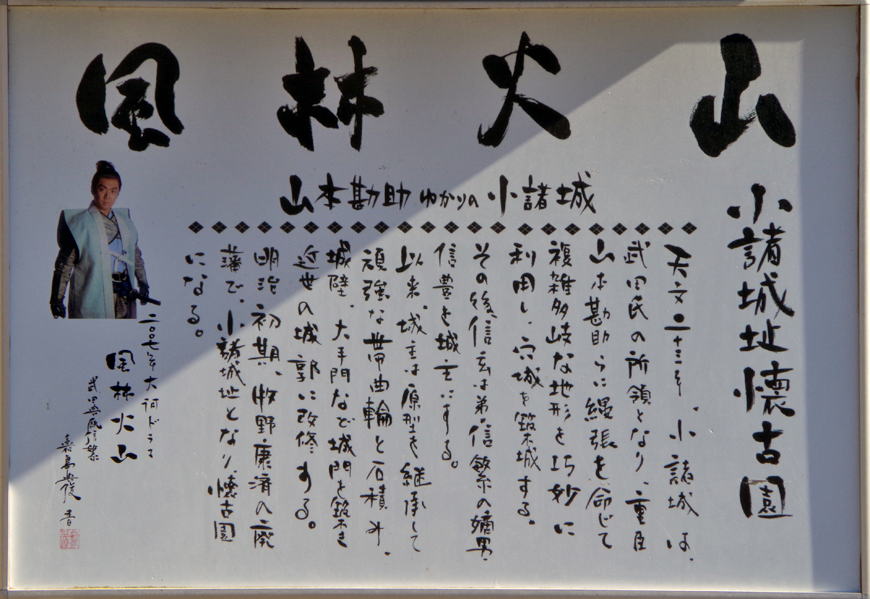 風林火山
小諸城址懐古園
山本勘助ゆかりの小諸城
天文二十三年、小諸城は、
武田氏の所領となり、重臣
山本勘助らに縄張を命じて
複雑多岐な地形を巧妙に
利用し、穴城を築城する。
その後信玄は弟・信繁の嫡男・
信豊を城主にする。
以来、城主は原型を継承して
頑強な帯曲輪と石積み、
城壁、大手門など城門を築き
近世の城郭に改修する。
明治初期、牧野康済の廃
藩で、小諸城址となり、懐古園
になる。
二〇〇七年大河ドラマ
風林火山
武田典厩信繁
嘉島典俊 書